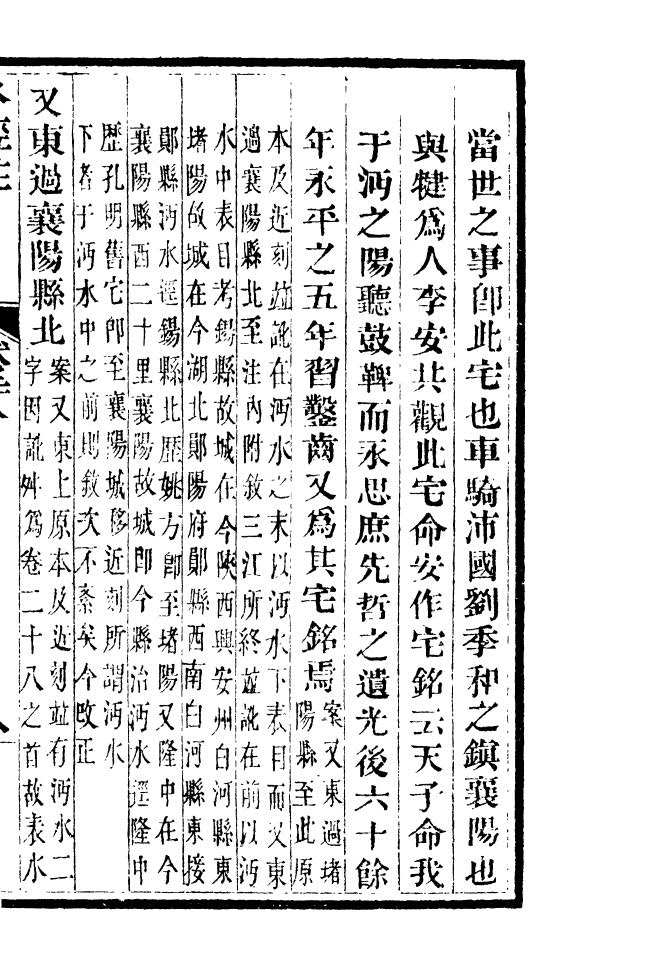 當世之事卽此宅也車騎沛國劉季和之鎮襄陽也
與犍爲人李安共觀此宅命安作宅銘云天子命我
于沔之陽聽鼓鞞而永思庶先哲之遺光後六十餘
年永平之五年習鑿齒又爲其宅銘焉案又東過堵
陽縣至此原
本及近刻竝訛在沔水之末以沔水下表目而又東
過襄陽縣北至注內附敘三江所終竝訛在前以沔
水中表目考鍚縣故城在今陝西興安州白河縣東
堵陽故城在今湖北鄖陽府鄖縣西南白河縣東接
鄖縣沔水逕鍚縣北歷姚方卽至堵陽又隆中在今
襄陽縣西二十里襄陽故城卽今縣治沔水逕隆中
歷孔明舊宅卽至襄陽城移近刻所謂沔水
下者于沔水中之前則敘次不紊矣今改正
又東過襄陽縣北案又東上原本及近刻竝有沔水二
字因訛舛爲卷二十八之首故表水